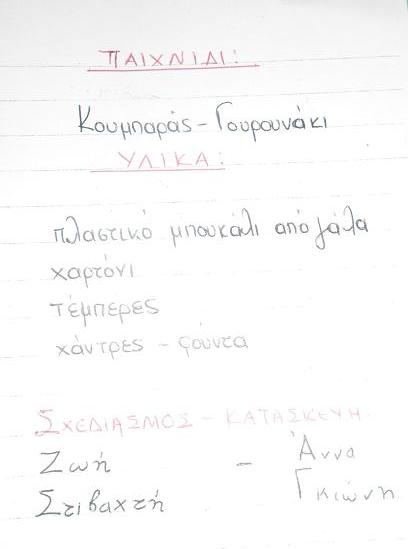 ΠΑΙΧΝΙΔΙ:
Κουμπαράς - Γουρουνάκι
ΥΛΙΚΑ:
πλαστικό μπουκάλι από γάλα
χαρτόνι
τέμπερες
χάντρες - φούντα
ΣΧΕΔΙΑΣΜΟΣ - ΚΑΤΑΣΚΕΥΗ
Ζωή - Άννα
Στιβαχτή Γκιώνη